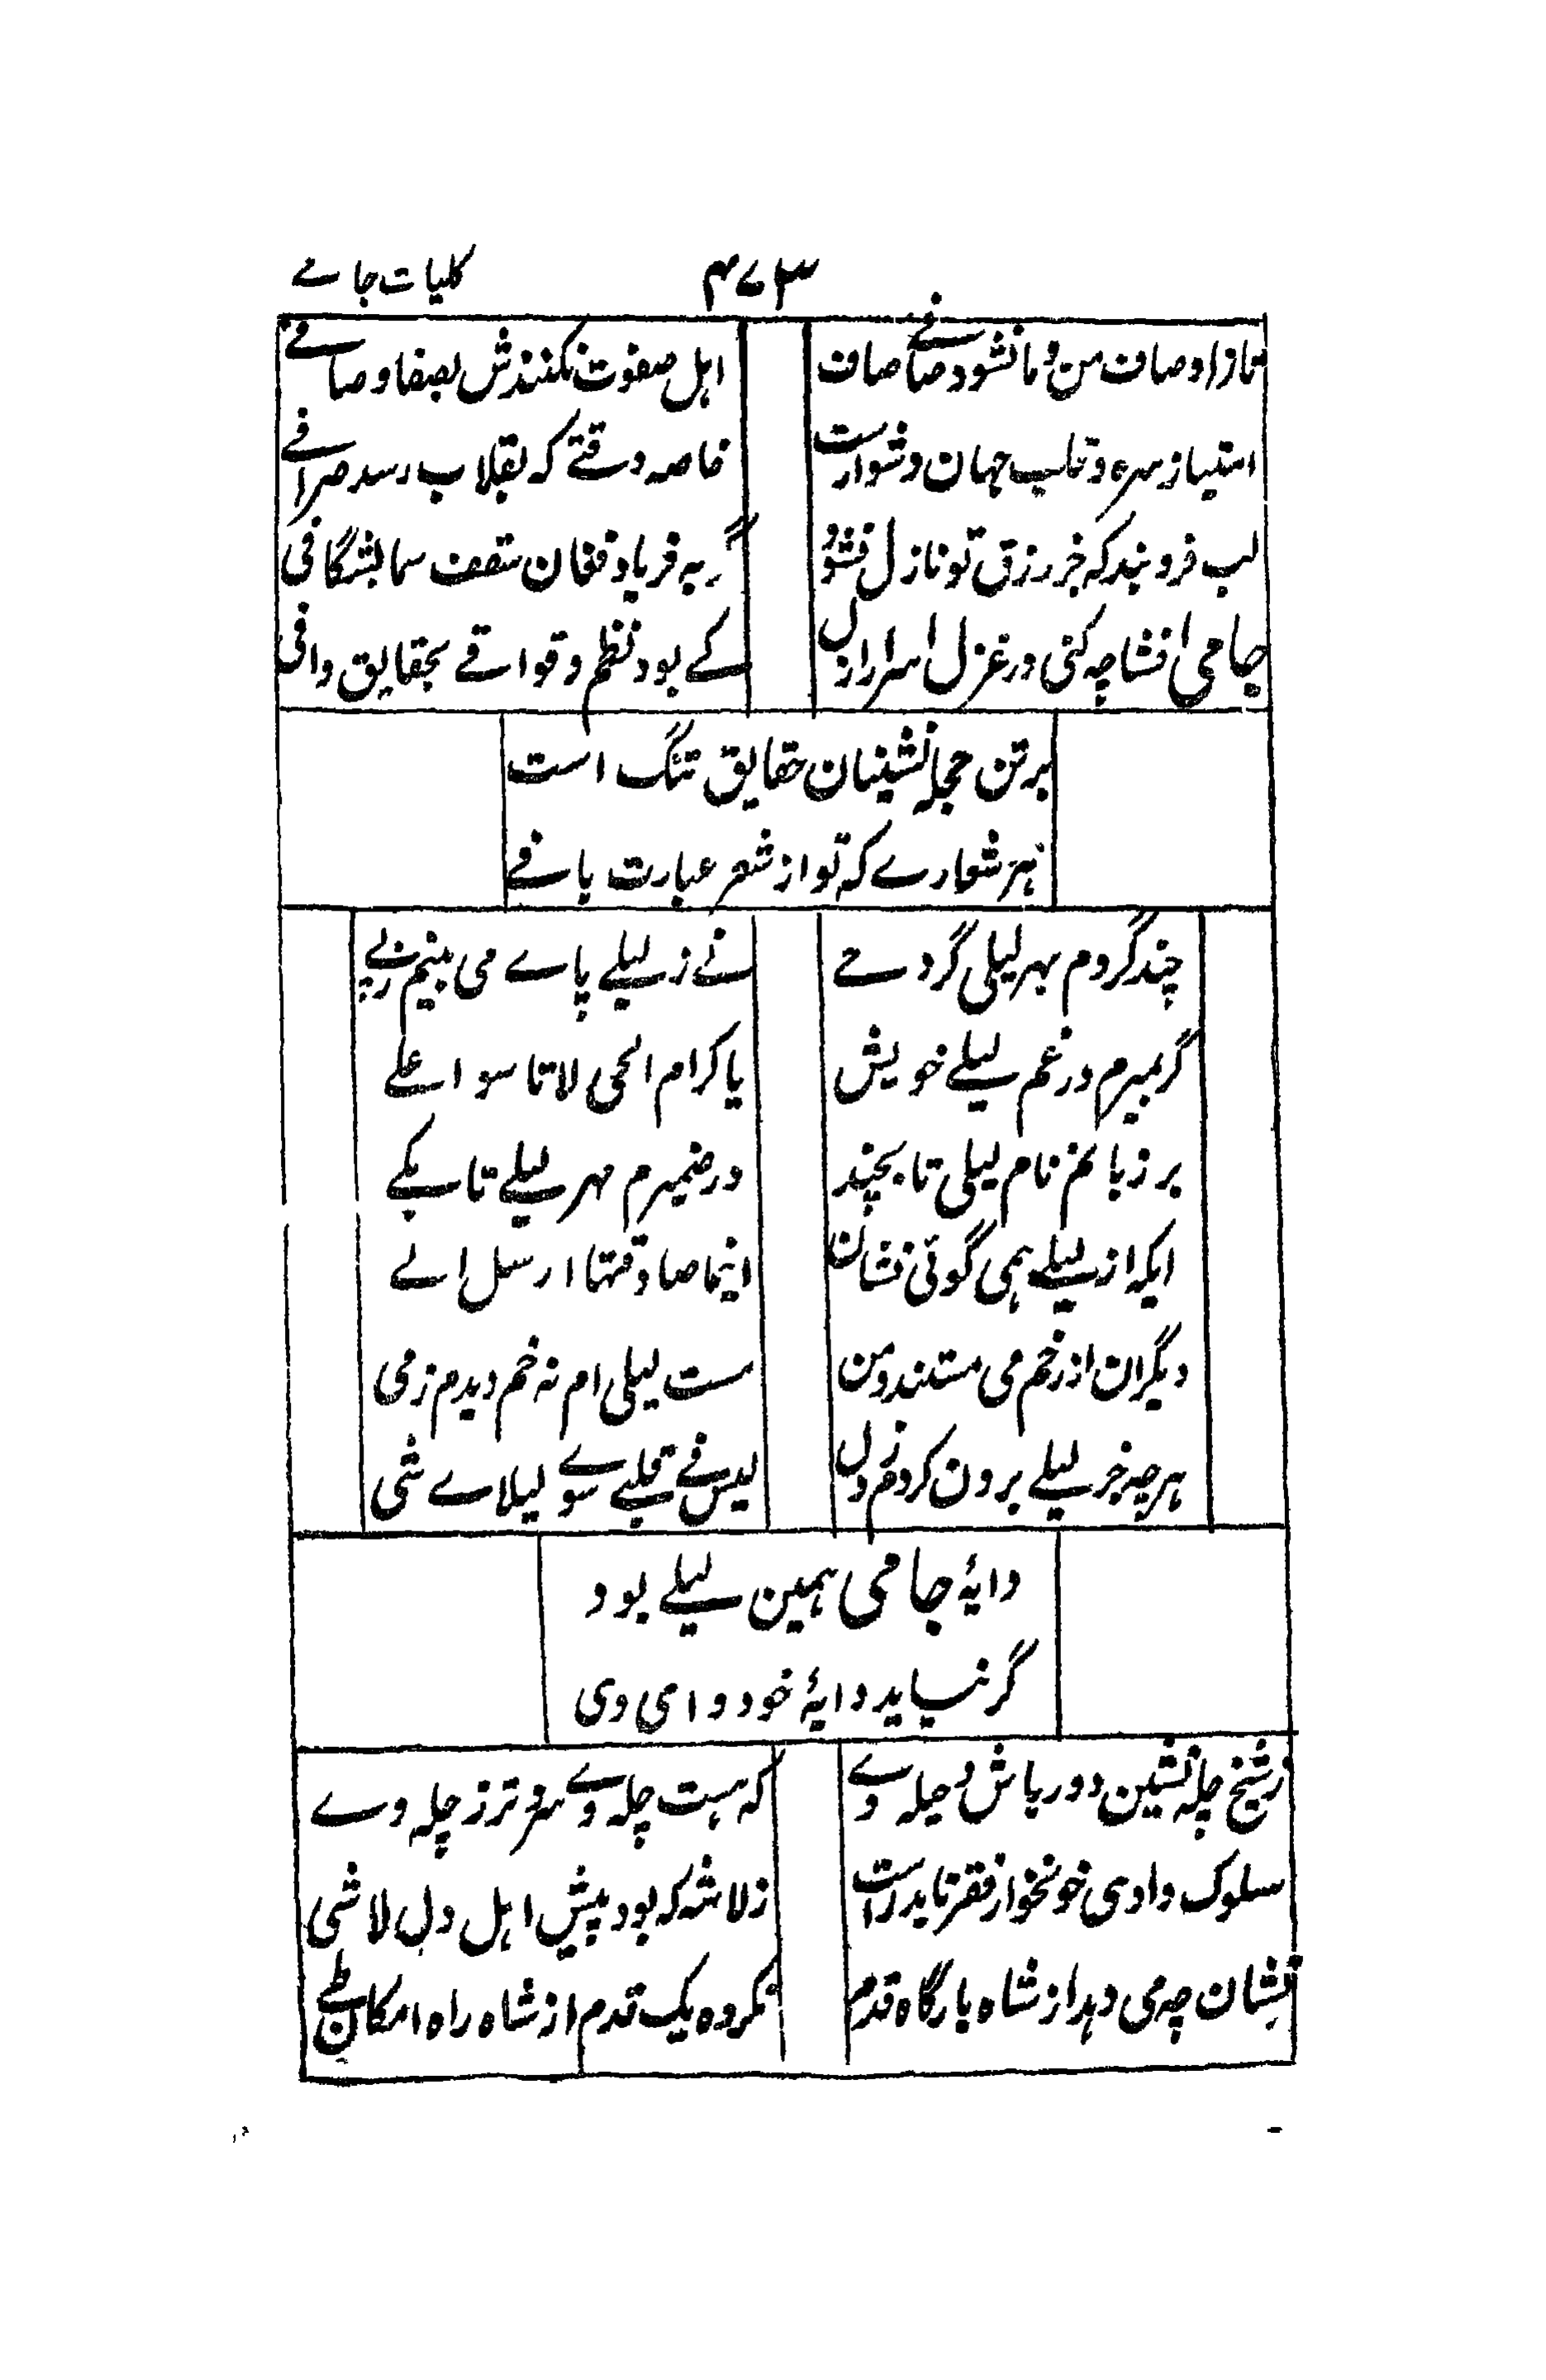 کلیات جامے
۴۷۳
تا ز اوصاف من و ما نشود صافے صاف
اہل صفوت نکنندش بصفا وصافے
امتیاز سرہ و قلب جہان دشوارست
خاصہ وقتے کہ بقلاب رسد صرافے
لب فروبند کہ جز رزق تو نازل نشود
گر بہ فریاد و فغان سقف سما بشگافی
جامی افشا چہ کنی در غزل اسرار ازل
کے بود نظم و قوافے بحقایق وافی
بر تن حجلہ نشینان حقایق تنگ است
ہر شعارے کہ تو از شعر عبارت بافے
چند گردم بہر لیلی گرد حے
نے ز لیلے پاے می بینم نہ پے
گر بمیرم در غم لیلے خویش
یا کرام الحی لا تاسوا علے
بر زبانم نام لیلی تا بچند
در ضمیرم مہر لیلے تا بکے
ایکہ از لیلے ہمی گوئی نشان
اینما صادفتہا ارسل الے
دیگران از خم می مستند و من
مست لیلی ام نہ خم دیدم نہ می
ہرچہ جز لیلے برون کردم ز دل
لیس فے قلبے سوے لیلاے شی
دایۂ جامی ہمین لیلے بود
گر نیاید دایۂ خود وامی وی
ز شیخ چلہ نشین دور باش و حیلہ وے
کہ ہست چلہ وے سرد تر ز چلہ دے
سلوک وادی خونخوار فقر ناید راست
ز لاشہ کہ بود پیش اہل دل لاشی
نشان چہ می دہد از شاہ بارگاہ قدم
نکردہ یک قدم از شاہ راہ امکان طے